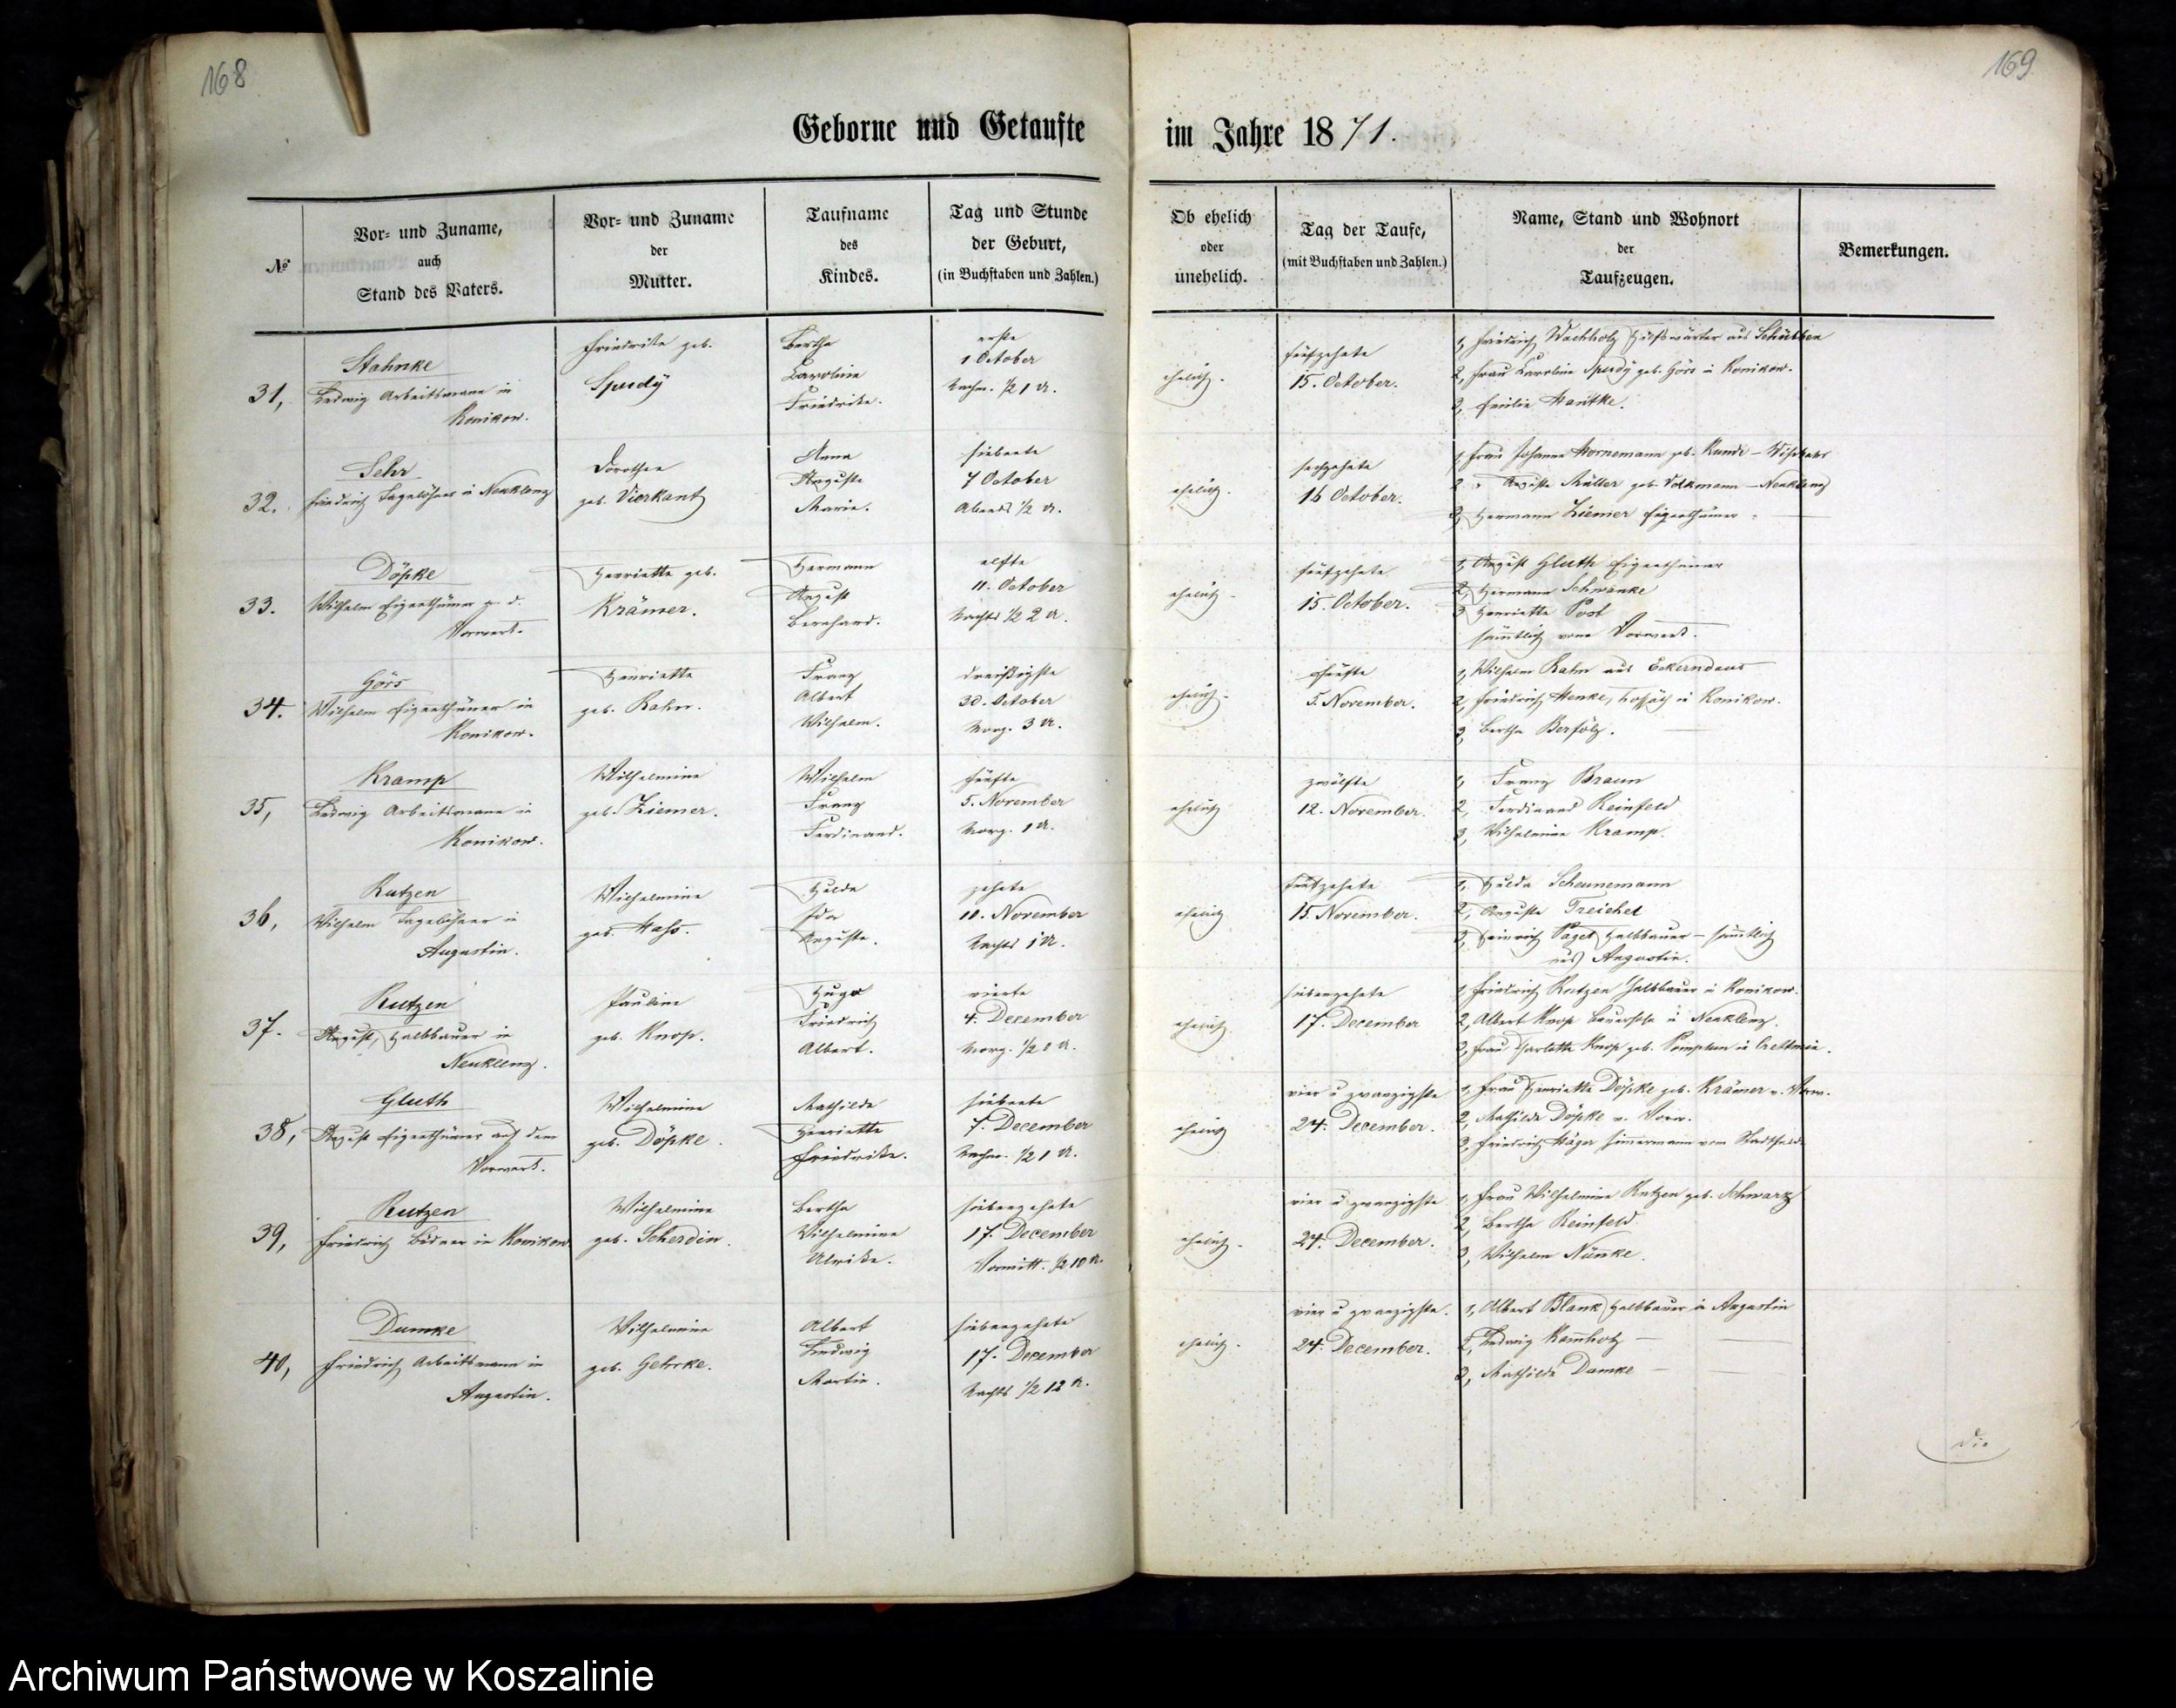 168
169
Geborne und Getaufte im Jahre 1871.
№
Vor- und Zuname,
auch
Stand des Vaters.
Vor- und Zuname
der
Mutter.
Taufname
des
Kindes.
Tag und Stunde
der Geburt,
(in Buchstaben und Zahlen.)
Ob ehelich
oder
unehelich.
Tag der Taufe,
(mit Buchstaben und Zahlen.)
Name, Stand und Wohnort
der
Taufzeugen.
Bemerkungen.
31,
Stahnke
Ludwig Arbeitsmann in
Konikow.
Friedrike geb.
Spudÿ
Bertha
Caroline
Friedrike.
erste
1 October
Nachm. ½ 1 U.
ehelich.
fünfzehnte
15. October.
1, Friedrich Wachholz aus Schübben
2, Frau Caroline Spudÿ geb. Görs in Konikow.
3, Emilie Mantke.
32.
Sehr
Friedrich Tagelöhner in Neuklenz
Dorothea
geb. Vierkant
Anna
Auguste
Marie.
siebente
7 October
Abends ½ U.
ehelich.
sechzehnte
16 October.
1, Frau Johanne Hornemann geb. Kunde –
2 " Auguste Müller geb. Volkmann – Neuklenz
3, Hermann Ziemer Eigenthümer
33.
Döpke
Wilhelm Eigenthümer a. d.
Vorwerk.
Henriette geb.
Krämer.
Hermann
August
Bernhard.
elfte
11. October
Nachts ½ 2 U.
ehelich.
fünfzehnte
15. October.
1, August Gluth Eigenthümer
2, Hermann Schwanke
3 Henriette Post
sämtlich vom Vorwerk.
34.
Görs
Wilhelm Eigenthümer in
Konikow.
Henriette
geb. Rahn.
Franz
Albert
Wilhelm.
dreißigste
30. October
Morg. 3 U.
ehelich.
fünfte
5. November.
1, Wilhelm Rahn aus
2, Friedrich Henke, in Konikow.
3, Bertha
35,
Kramp
Ludwig Arbeitsmann in
Konikow.
Wilhelmine
geb. Ziemer.
Wilhelm
Franz
Ferdinand.
fünfte
5. November
Morg. 1 U.
ehelich
zwölfte
12. November.
1, Franz Braun
2, Ferdinand Reinfeld
3, Wilhelmine Kramp.
36,
Rutzen
Wilhelm Tagelöhner in
Augustin.
Wilhelmine
geb. Hass.
Hulda
Ida
Auguste.
zehnte
10. November
Nachts 1 U.
ehelich
fünfzehnte
15 November.
1, Hulda Scheunemann
2, Auguste Treichel
3, Heinrich Paget Halbbauer – sämtlich
aus Augustin.
37.
Rutzen
August, Halbbauer in
Neuklenz.
Pauline
geb. Knop.
Hugo
Friedrich
Albert.
vierte
4. December
Morg. U.
ehelich
siebenzehnte
17. December
1, Friedrich Rutzen Halbbauer in Konikow.
2, Albert Knop Bauersohn in Neuklenz.
3, Frau Charlotte Knop geb. in Crettmin.
38,
Gluth
August Eigenthümer auf dem
Vorwerk.
Wilhelmine
geb. Döpke.
Mathilde
Henriette
Friedrike.
siebente
7. December
Nachm. ½ 1 U.
ehelich
vier u zwanzigste
24. December.
1, Frau Henriette Döpke geb. Krämer v. Vorw.
2, Mathilde Döpke v. Vorw.
3, Friedrich Häger Zimmermann vom Stadtfelde
39,
Rutzen
Friedrich Büdner in Konikow
Wilhelmine
geb. Scherdin.
Bertha
Wilhelmine
Ulrike.
siebenzehnte
17. December
Vormitt. ½ 10 U.
ehelich.
vier u zwanzigste
24. December.
1, Frau Wilhelmine Rutzen geb. Schwarz
2, Bertha Reinfeld
3, Wilhelm Nünke.
40,
Dumke
Friedrich Arbeitsmann in
Augustin.
Wilhelmine
geb. Gehrke.
Albert
Ludwig
Martin.
siebenzehnte
17. December
Nachts ½ 12 U.
ehelich.
vier u zwanzigste.
24. December.
1, Albert Blank Halbbauer in Augustin
2, Ludwig Ramholz –
3, Mathilde Dumke –
Die
Archiwum Państwowe w Koszalinie